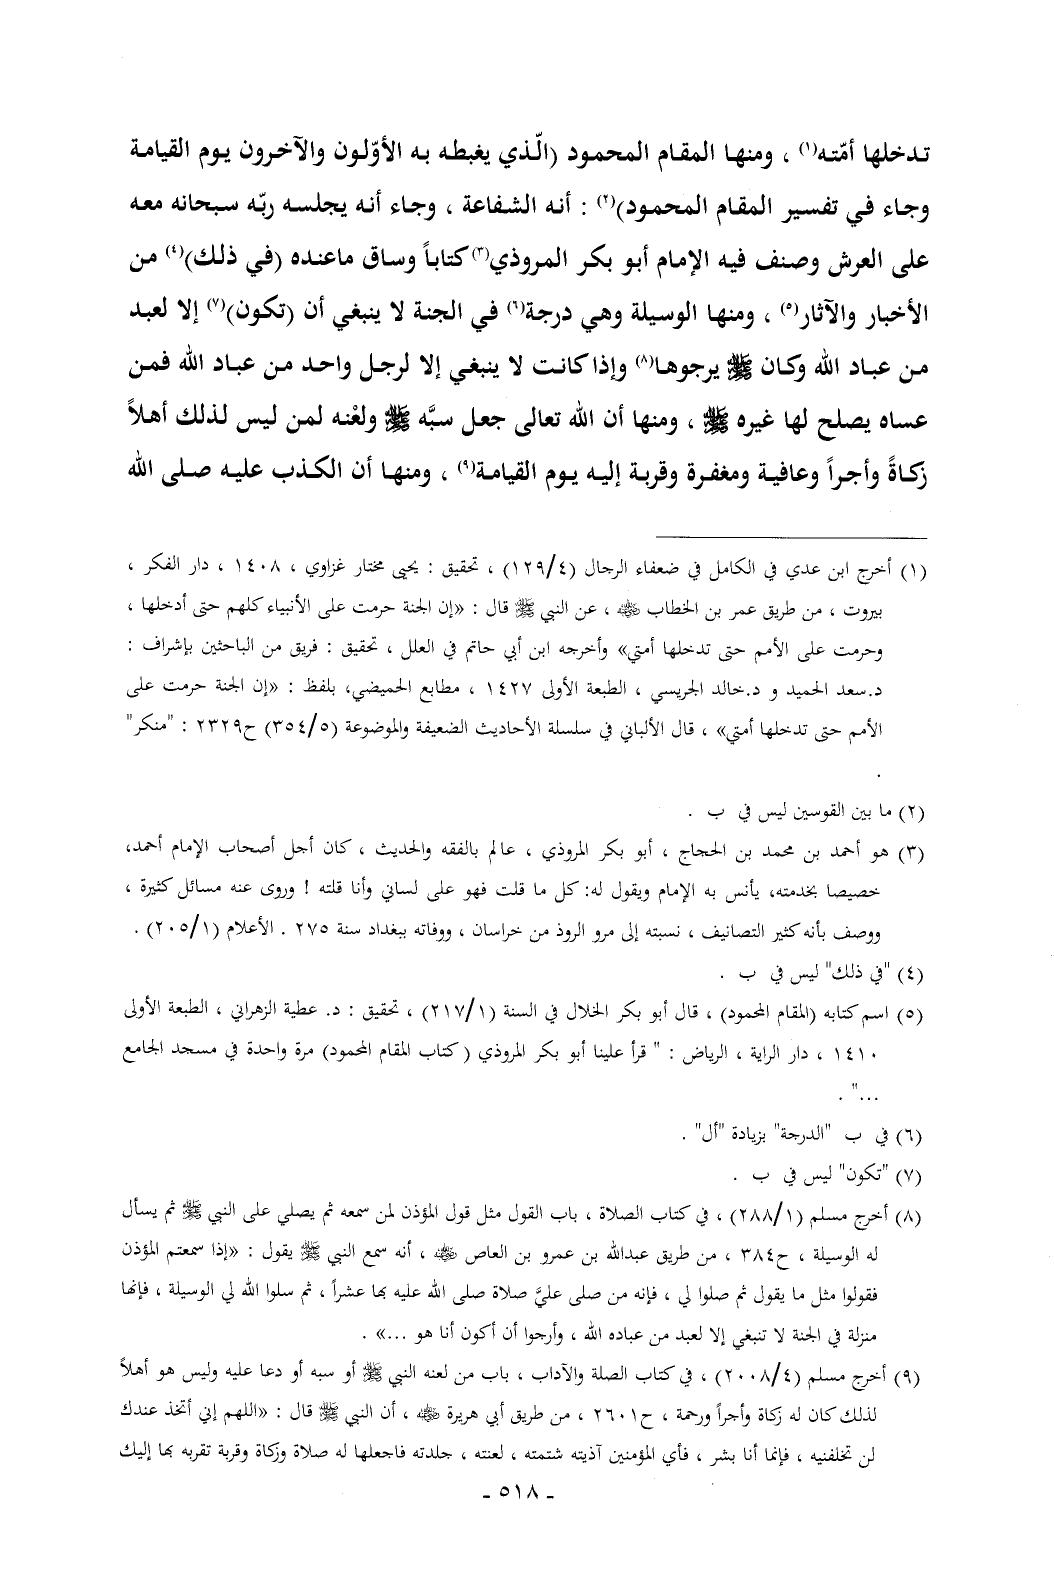 تدخلها أمّته(١) ، ومنها المقام المحمود (الّذي يغبطه به الأوّلون والآخرون يوم القيامة
وجاء في تفسير المقام المحمود)(٢) : أنه الشفاعة ، وجاء أنه يجلسه ربّه سبحانه معه
على العرش وصنف فيه الإمام أبو بكر المروذي(٣) كتاباً وساق ماعنده (في ذلك)(٤) من
الأخبار والآثار(٥) ، ومنها الوسيلة وهي درجة(٦) في الجنة لا ينبغي أن (تكون)(٧) إلا لعبد
من عباد الله وكان ﷺ يرجوها(٨) وإذا كانت لا ينبغي إلا لرجل واحد من عباد الله فمن
عساه يصلح لها غيره ﷺ ، ومنها أن الله تعالى جعل سبَّه ﷺ ولعْنه لمن ليس لذلك أهلاً
زكاةً وأجراً وعافية ومغفرة وقربة إليه يوم القيامة(٩) ، ومنها أن الكذب عليه صلى الله
(١) أخرج ابن عدي في الكامل في ضعفاء الرجال (١٢٩/٤) ، تحقيق : يحيى مختار غزاوي ، ١٤٠٨ ، دار الفكر ،
بيروت ، من طريق عمر بن الخطاب ﵁ ، عن النبي ﷺ قال : «إن الجنة حرمت على الأنبياء كلهم حتى أدخلها ،
وحرمت على الأمم حتى تدخلها أمتي» وأخرجه ابن أبي حاتم في العلل ، تحقيق : فريق من الباحثين بإشراف :
د.سعد الحميد و د.خالد الجريسي ، الطبعة الأولى ١٤٢٧ ، مطابع الحميضي، بلفظ : «إن الجنة حرمت على
الأمم حتى تدخلها أمتي» ، قال الألباني في سلسلة الأحاديث الضعيفة والموضوعة (٣٥٤/٥) ح٢٣٢٩ : "منكر"
.
(٢) ما بين القوسين ليس في ب .
(٣) هو أحمد بن محمد بن الحجاج ، أبو بكر المروذي ، عالم بالفقه والحديث ، كان أجل أصحاب الإمام أحمد،
خصيصا بخدمته، يأنس به الإمام ويقول له: كل ما قلت فهو على لساني وأنا قلته ! وروى عنه مسائل كثيرة ،
ووصف بأنه كثير التصانيف ، نسبته إلى مرو الروذ من خراسان ، ووفاته ببغداد سنة ٢٧٥ . الأعلام (٢٠٥/١) .
(٤) "في ذلك" ليس في ب .
(٥) اسم كتابه (المقام المحمود) ، قال أبو بكر الخلال في السنة (٢١٧/١) ، تحقيق : د. عطية الزهراني ، الطبعة الأولى
١٤١٠ ، دار الراية ، الرياض : " قرأ علينا أبو بكر المروذي ( كتاب المقام المحمود) مرة واحدة في مسجد الجامع
..." .
(٦) في ب "الدرجة" بزيادة "أل" .
(٧) "تكون" ليس في ب .
(٨) أخرج مسلم (٢٨٨/١) ، في كتاب الصلاة ، باب القول مثل قول المؤذن لمن سمعه ثم يصلي على النبي ﷺ ثم يسأل
له الوسيلة ، ح٣٨٤ ، من طريق عبدالله بن عمرو بن العاص ﵁ ، أنه سمع النبي ﷺ يقول : «إذا سمعتم المؤذن
فقولوا مثل ما يقول ثم صلوا لي ، فإنه من صلى عليَّ صلاة صلى الله عليه بها عشراً ، ثم سلوا الله لي الوسيلة ، فإنها
منزلة في الجنة لا تنبغي إلا لعبد من عباده الله ، وأرجوا أن أكون أنا هو ...» .
(٩) أخرج مسلم (٢٠٠٨/٤) ، في كتاب الصلة والآداب ، باب من لعنه النبي ﷺ أو سبه أو دعا عليه وليس هو أهلاً
لذلك كان له زكاة وأجراً ورحمة ، ح٢٦٠١ ، من طريق أبي هريرة ﵁ ، أن النبي ﷺ قال : «اللهم إني أتخذ عندك
لن تخلفنيه ، فإنما أنا بشر ، فأي المؤمنين آذيته شتمته ، لعنته ، جلدته فاجعلها له صلاة وزكاة وقربة تقربه بها إليك
- ٥١٨ -